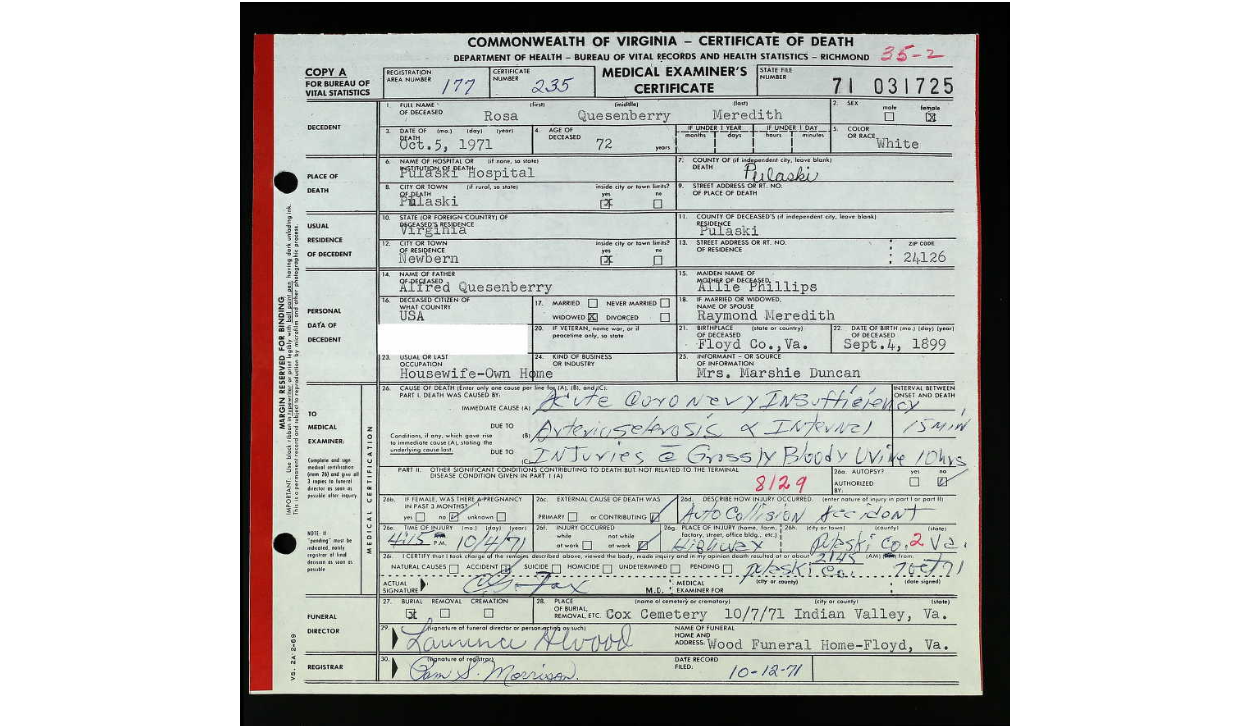 COMMONWEALTH OF VIRGINIA – CERTIFICATE OF DEATH
DEPARTMENT OF HEALTH – BUREAU OF VITAL RECORDS AND HEALTH STATISTICS – RICHMOND 35-2
COPY A
FOR BUREAU OF
VITAL STATISTICS
REGISTRATION
AREA NUMBER 177
CERTIFICATE
NUMBER 235
MEDICAL EXAMINER'S
CERTIFICATE
STATE FILE
NUMBER
71 031725
DECEDENT
1. FULL NAME (first) (middle) (last)
OF DECEASED Rosa Quesenberry Meredith
2. SEX male female X
3. DATE OF (mo.) (day) (year)
DEATH
Oct.5, 1971
4. AGE OF
DECEASED
72 years
IF UNDER 1 YEAR
months days
IF UNDER 1 DAY
hours minutes
5. COLOR
OR RACE White
PLACE OF
DEATH
6. NAME OF HOSPITAL OR (if none, so state)
INSTITUTION OF DEATH
Pulaski Hospital
7. COUNTY OF (if independent city, leave blank)
DEATH Pulaski
8. CITY OR TOWN (if rural, so state)
OF DEATH
Pulaski
inside city or town limits?
yes X no
9. STREET ADDRESS OR RT. NO.
OF PLACE OF DEATH
USUAL
RESIDENCE
OF DECEDENT
10. STATE (OR FOREIGN COUNTRY) OF
DECEASED'S RESIDENCE
Virginia
11. COUNTY OF DECEASED'S (if independent city, leave blank)
RESIDENCE
Pulaski
12. CITY OR TOWN
OF RESIDENCE
Newbern
inside city or town limits?
yes X no
13. STREET ADDRESS OR RT. NO.
OF RESIDENCE
ZIP CODE
24126
PERSONAL
DATA OF
DECEDENT
14. NAME OF FATHER
OF DECEASED
Alfred Quesenberry
15. MAIDEN NAME OF
MOTHER OF DECEASED
Allie Phillips
16. DECEASED CITIZEN OF
WHAT COUNTRY
USA
17. MARRIED NEVER MARRIED
WIDOWED X DIVORCED
18. IF MARRIED OR WIDOWED,
NAME OF SPOUSE
Raymond Meredith
20. IF VETERAN, name war, or if
peacetime only, so state
21. BIRTHPLACE (state or country)
OF DECEASED
Floyd Co.,Va.
22. DATE OF BIRTH (mo.) (day) (year)
OF DECEASED
Sept.4, 1899
23. USUAL OR LAST
OCCUPATION
Housewife-Own Home
24. KIND OF BUSINESS
OR INDUSTRY
25. INFORMANT – OR SOURCE
OF INFORMATION
Mrs. Marshie Duncan
MARGIN RESERVED FOR BINDING
TO
MEDICAL
EXAMINER:
Complete and sign
medical certification
(item 26) and give all
3 copies to funeral
director as soon as
possible after inquiry
NOTE: If
"pending" must be
indicated, notify
registrar of final
decision as soon as
possible
MEDICAL CERTIFICATION
26. CAUSE OF DEATH (Enter only one cause per line for (A), (B), and (C).
PART I. DEATH WAS CAUSED BY:
IMMEDIATE CAUSE (A) Acute Coronery Insufficiency
INTERVAL BETWEEN
ONSET AND DEATH
DUE TO
(B) Arteriosclerosis & Internal 15 Min
Conditions, if any, which gave rise
to immediate cause (A), stating the
underlying cause last.
DUE TO
(C) Injuries @ Grossly Bloody Urine 10 hrs
PART II. OTHER SIGNIFICANT CONDITIONS CONTRIBUTING TO DEATH BUT NOT RELATED TO THE TERMINAL
DISEASE CONDITION GIVEN IN PART I (A)
8129
26a. AUTOPSY? yes no
AUTHORIZED
BY:
26b. IF FEMALE, WAS THERE A PREGNANCY
IN PAST 3 MONTHS?
yes no unknown
26c. EXTERNAL CAUSE OF DEATH WAS
PRIMARY or CONTRIBUTING
26d. DESCRIBE HOW INJURY OCCURRED (enter nature of injury in part I or part II)
Auto Collision Accident
26e. TIME OF INJURY (mo.) (day) (year)
415 P.M. 10/4/71
26f. INJURY OCCURRED
while at work not while at work
26g. PLACE OF INJURY (home, farm,
factory, street, office bldg., etc.)
Highway
26h. (city or town) (county) (state)
Pulaski Co. 2 Va.
26i. I CERTIFY that I took charge of the remains described above, viewed the body, made inquiry and in my opinion death resulted at or about 2145 (AM) from:
NATURAL CAUSES ACCIDENT SUICIDE HOMICIDE UNDETERMINED PENDING Pulaski Co. 7 Oct 71
ACTUAL
SIGNATURE M.D.
MEDICAL
EXAMINER FOR (city or county) (date signed)
FUNERAL
DIRECTOR
27. BURIAL REMOVAL CREMATION
X
28. PLACE (name of cemetery or crematory) (city or county) (state)
OF BURIAL
REMOVAL, ETC. Cox Cemetery 10/7/71 Indian Valley, Va.
29. (signature of funeral director or person acting as such)
NAME OF FUNERAL
HOME AND
ADDRESS: Wood Funeral Home-Floyd, Va.
REGISTRAR
30. (signature of registrar)
Pam S. Morrison
DATE RECORD
FILED: 10-12-71
VS. 2A-2-69